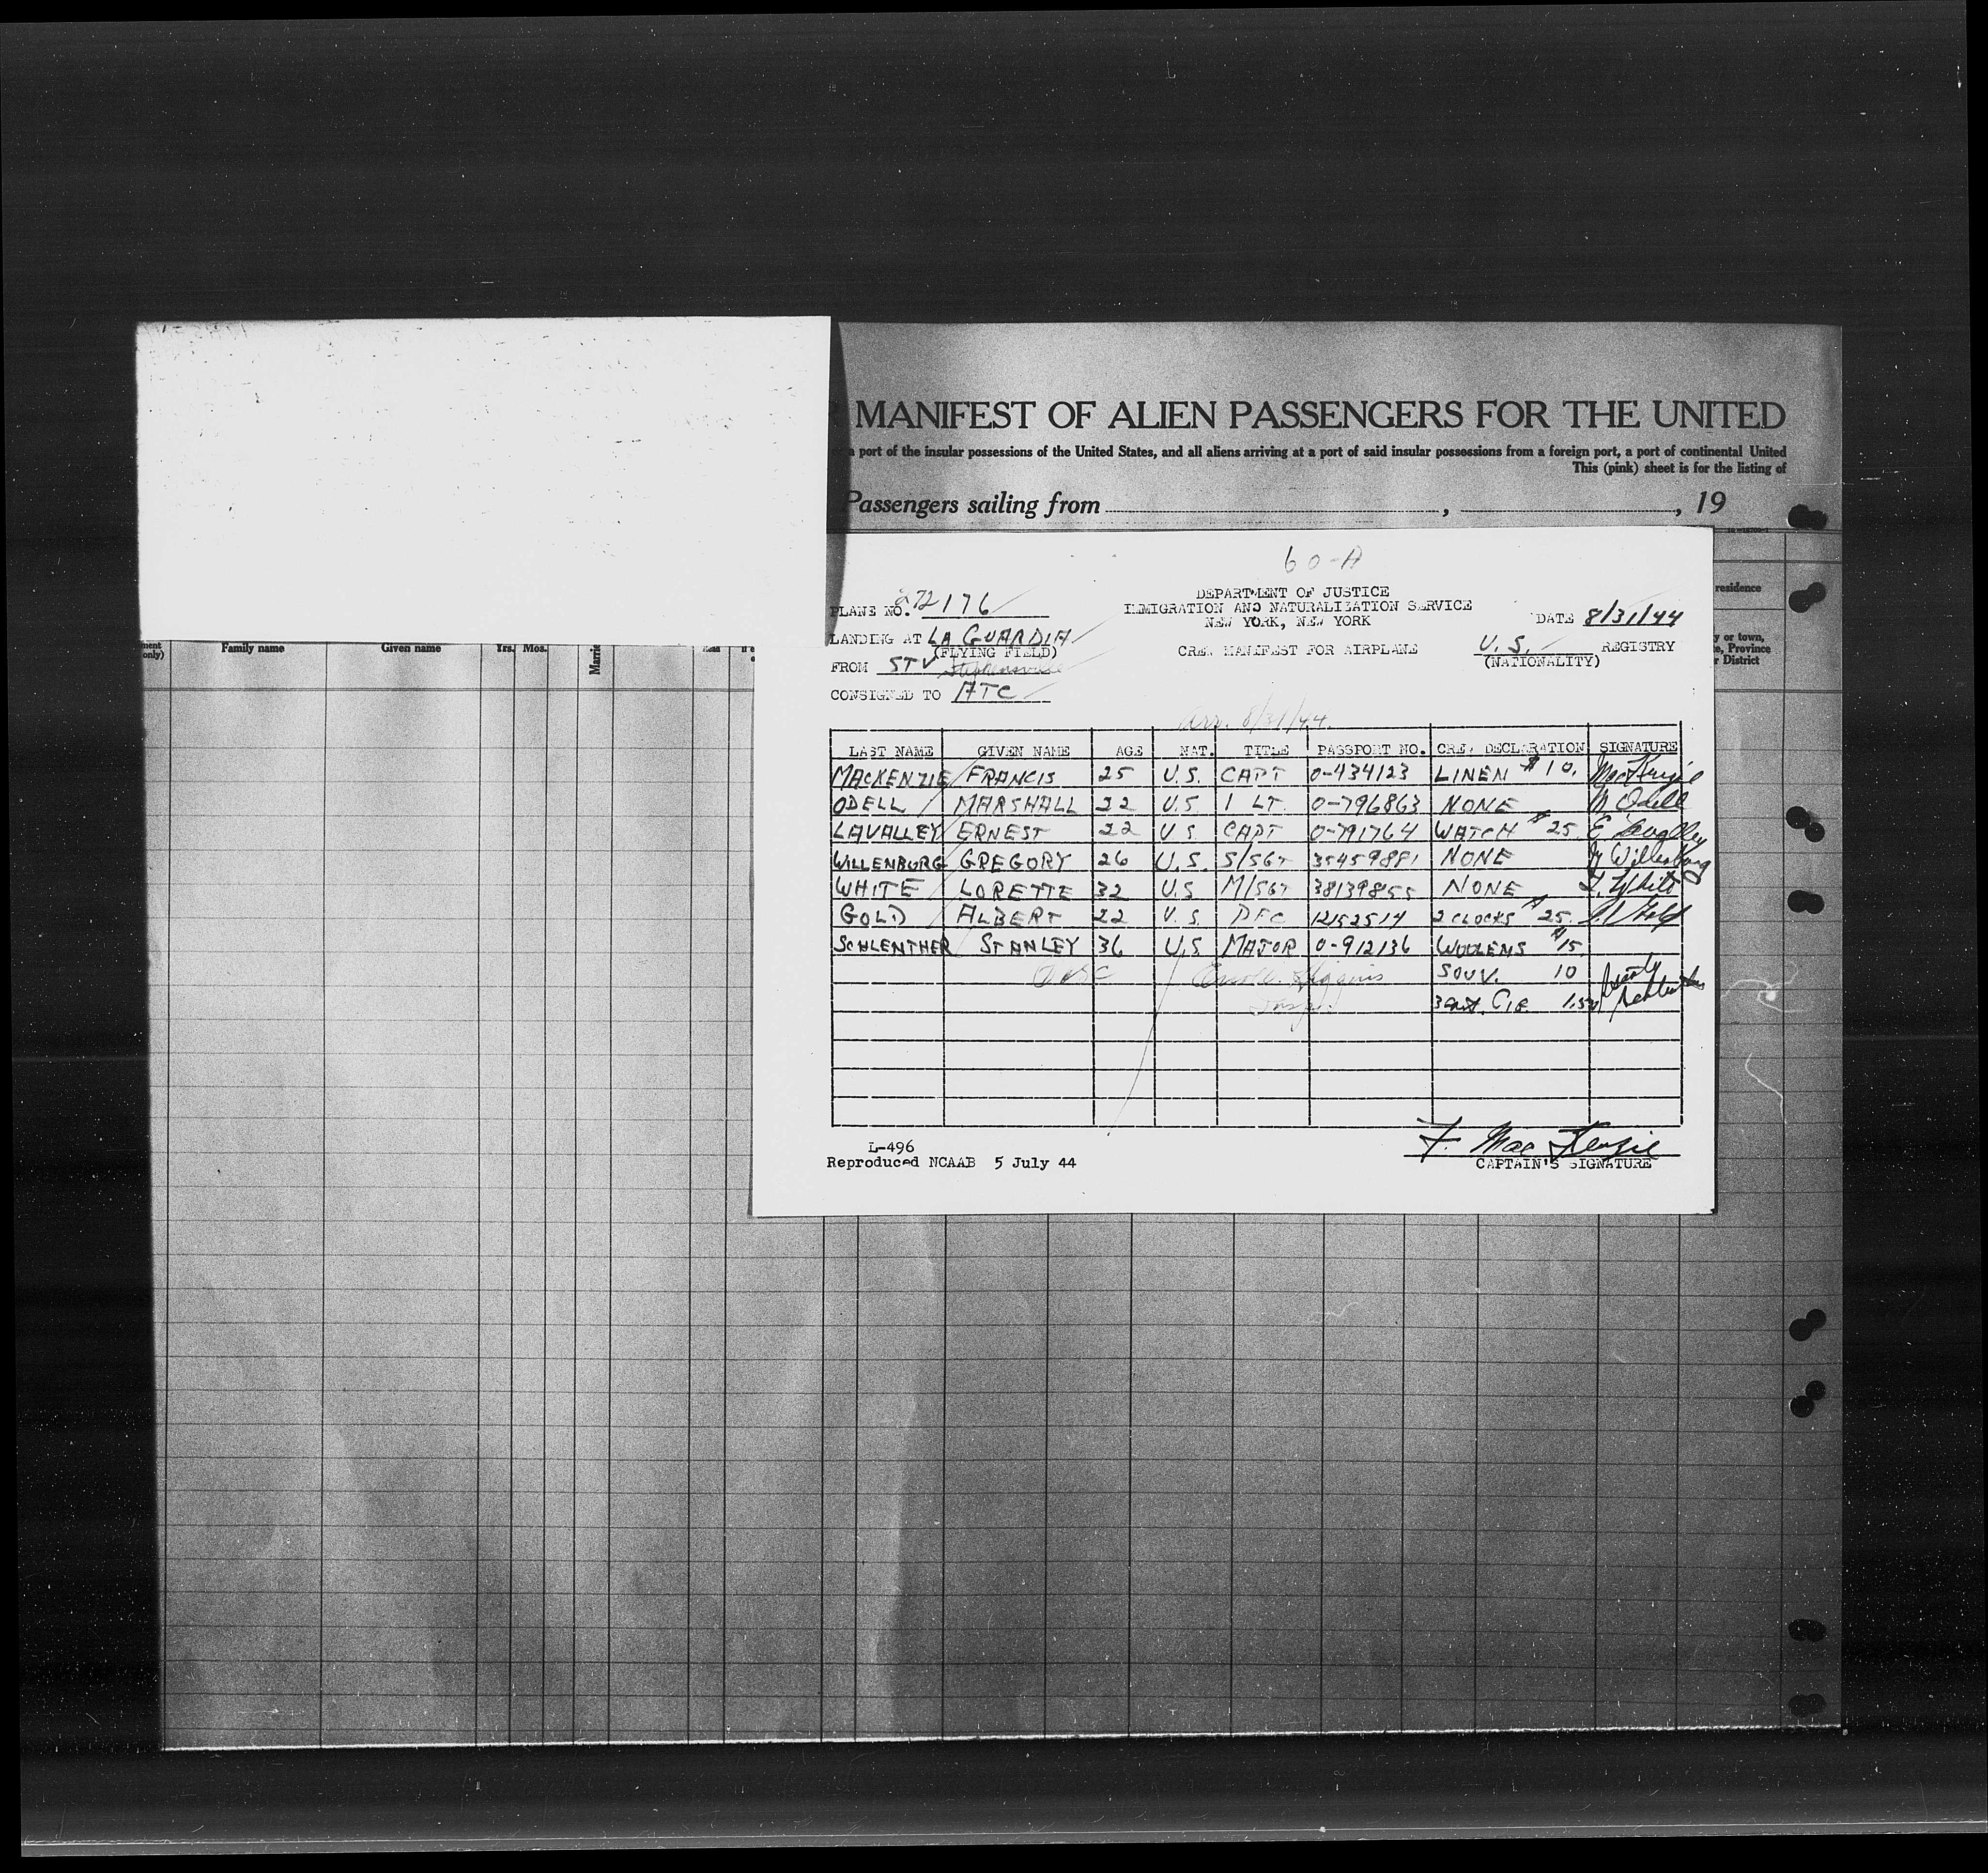 MANIFEST OF ALIEN PASSENGERS FOR THE UNITED
a port of the insular possessions of the United States, and all aliens arriving at a port of said insular possessions from a foreign port, a port of continental United
This (pink) sheet is for the listing of
Passengers sailing from , , 19
residence
y or town,
e, Province
r District
ment
only)
Family name
Given name
Yrs. Mos.
Marrie
60-A
PLANE NO. 272176
DEPARTMENT OF JUSTICE
IMMIGRATION AND NATURALIZATION SERVICE
NEW YORK, NEW YORK
DATE 8/31/44
LANDING AT LA GUARDIA
(FLYING FIELD)
CREW MANIFEST FOR AIRPLANE
U.S. REGISTRY
(NATIONALITY)
FROM STV Stephensville
CONSIGNED TO ATC
Arr. 8/31/44.
LAST NAME GIVEN NAME AGE NAT. TITLE PASSPORT NO. CREW DECLARATION SIGNATURE
MACKENZIE FRANCIS 25 U.S. CAPT 0-434123 LINEN $10. MacKenzie
ODELL MARSHALL 22 U.S 1 LT. 0-796863 NONE M Odell
LAVALLEY ERNEST 22 U.S. CAPT 0-791764 WATCH $25. E Lavalley
WILLENBURG GREGORY 26 U.S. S/SGT 35459881 NONE G Willenburg
WHITE LORETTE 32 U.S M/SGT 38139855 NONE L. White
GOLD ALBERT 22 U.S. PFC 12152514 2 CLOCKS $25. A Gold
SCHLENTHER STANLEY 36 U.S MAJOR 0-912136 WOOLENS $15.
SOUV. 10
3 CIG. 1.50
L-496
Reproduced NCAAB 5 July 44
F. MacKenzie
CAPTAIN'S SIGNATURE